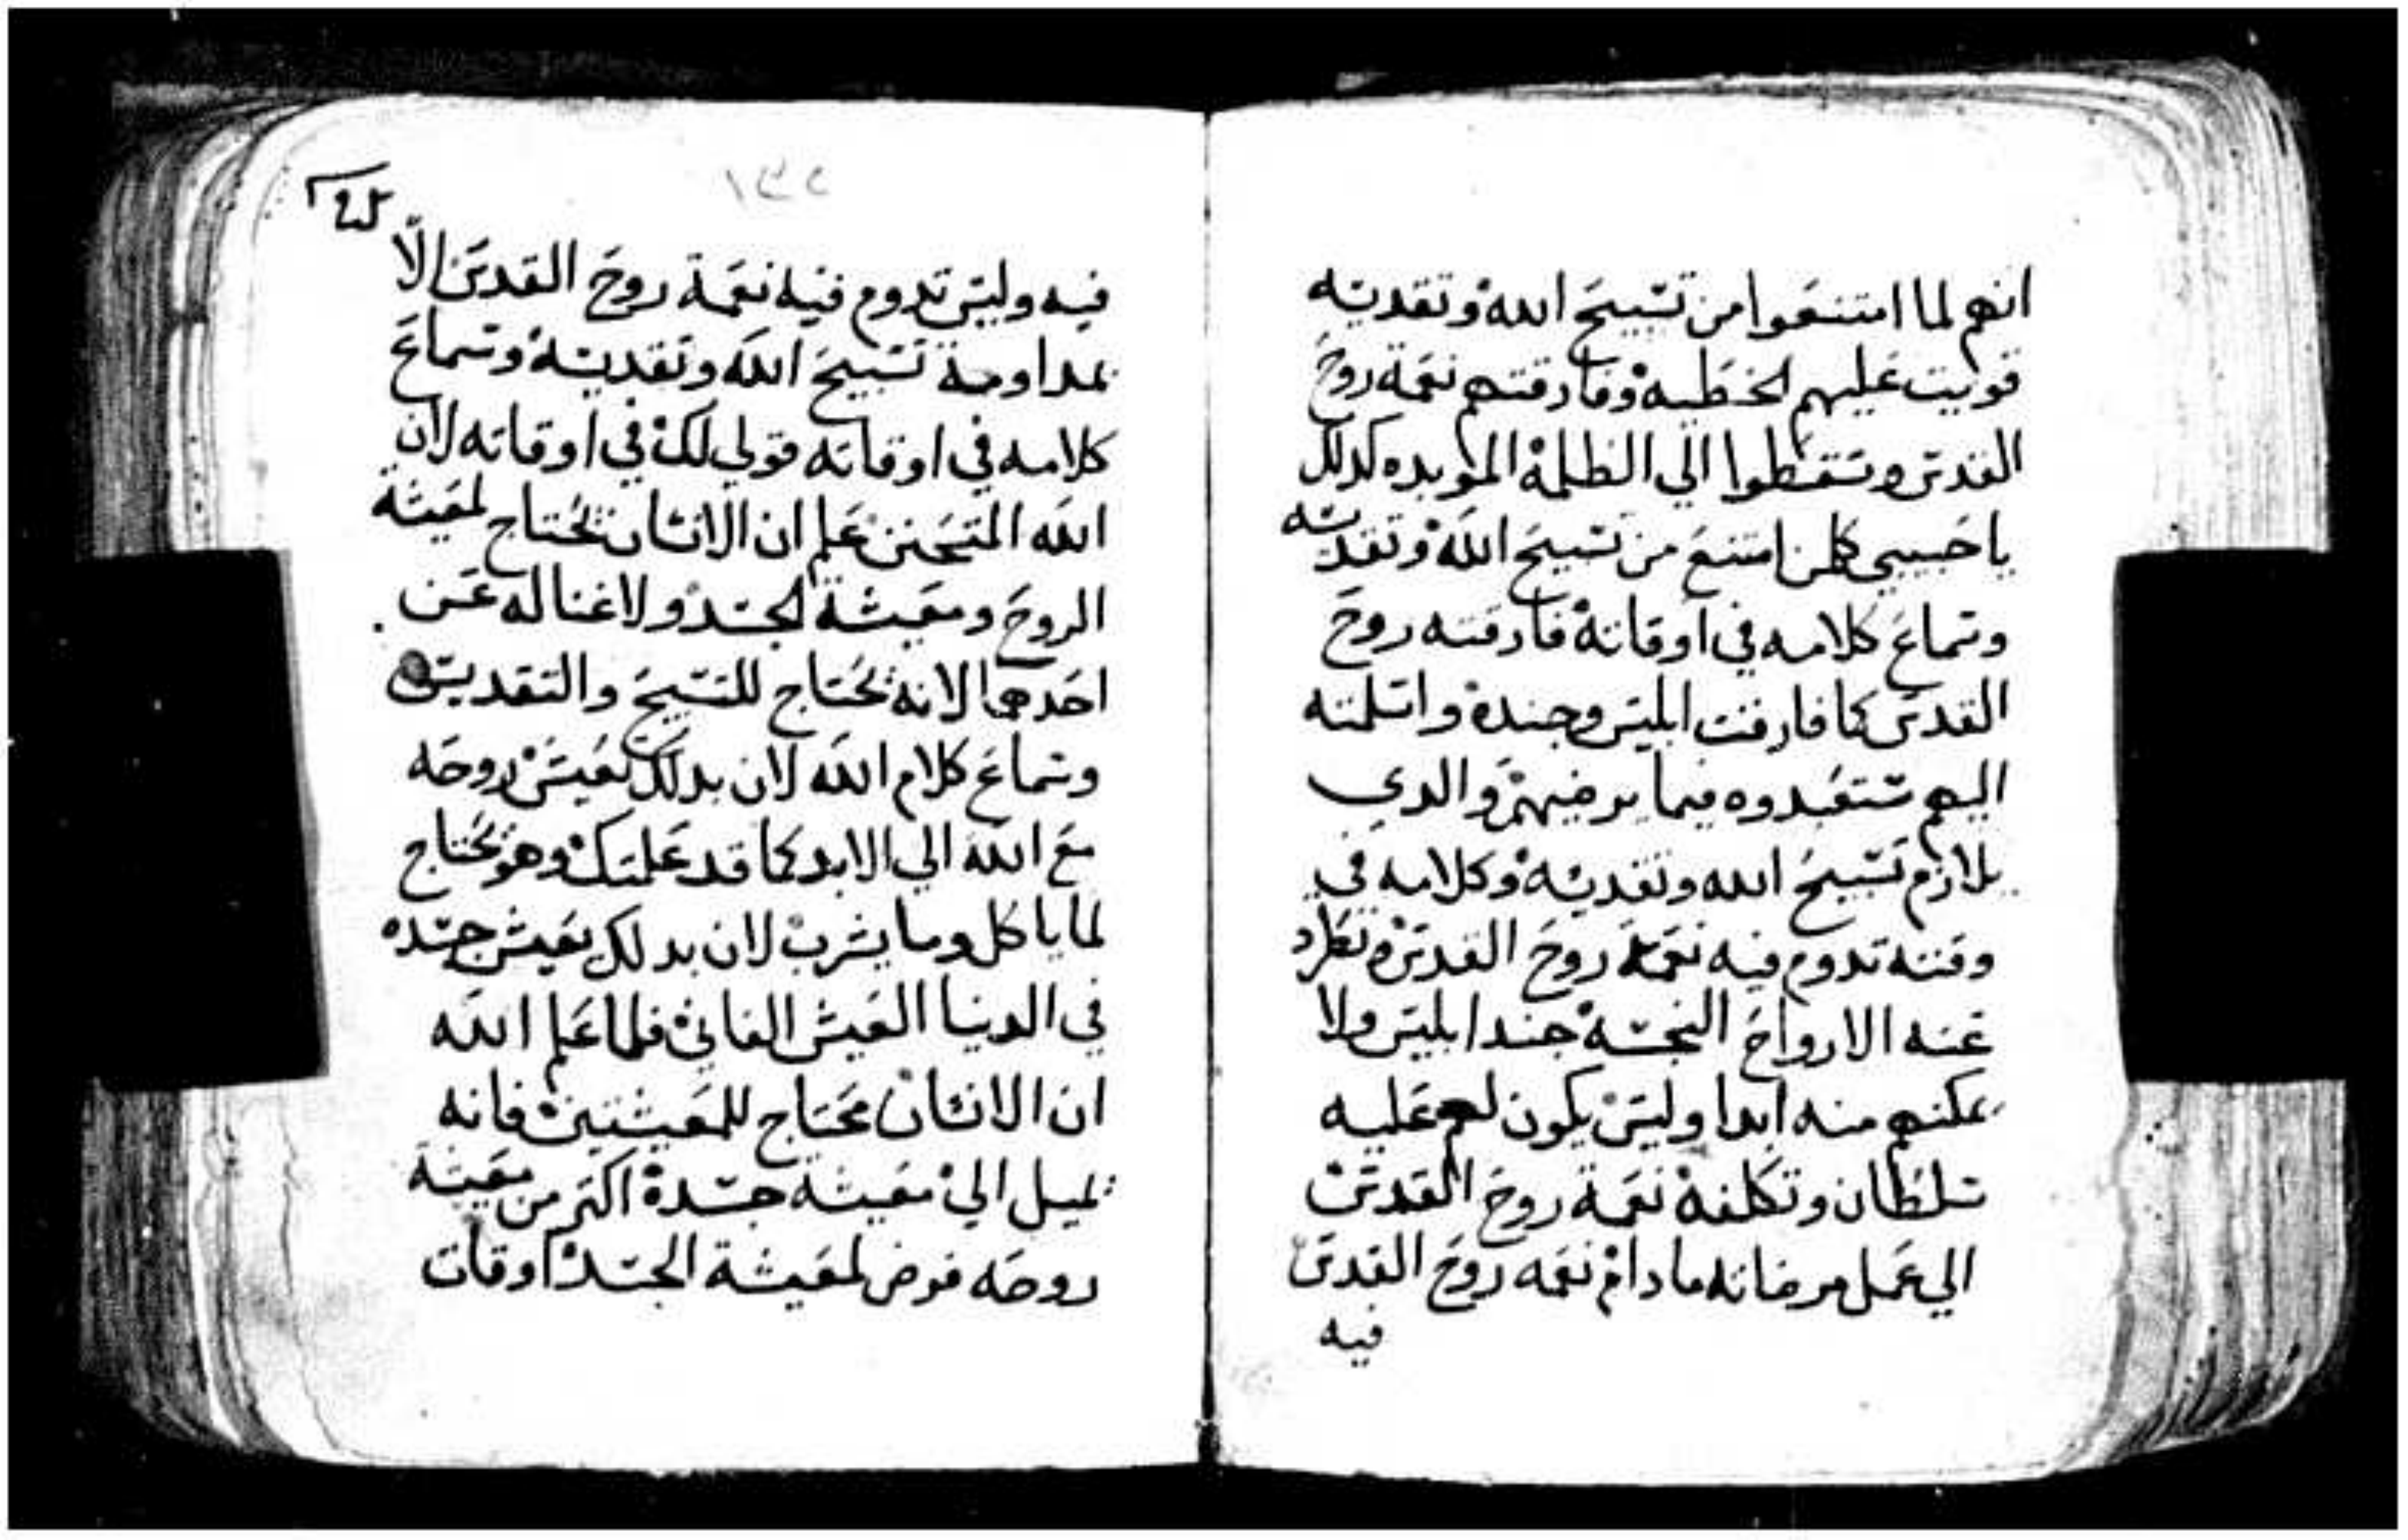 انهم لما امتنعوا من تسبيح الله وتقديسه
قويت عليهم الخطيه وفارقتهم نعمة روح
القدس وسقطوا الي الظلمة الموبده كدلك
ياحبيبي كلمن امتنع من تسبيح الله وتقديسه
وسماع كلامه في اوقاته فارقته روح
القدس كما فارقت ابليس وجنده واسلمته
اليهم ستعبدوه فيما يرضيهم والدي
يلازم تسبيح الله وتقديسه وكلامه في
وقته تدوم فيه نعمة روح القدس وتطرد
عنه الارواح النجسه جند ابليس ولا
يمكنهم منه ابدا وليس يكون لهم عليه
سلطان وتكلفه نعمة روح القدس
الي عمل مرضاته مادام نعمه روح القدس
فيه
١٣٢
فيه وليس تدوم فيه نعمة روح القدس الّا
بمداومة تسبيح الله وتقديسه وسماع
كلامه في اوقاته قولي لك في اوقاته لان
الله المتحنن علم ان الانسان يحتاج لمعيشة
الروح ومعيشة الجسد ولا غنا له عن
احدهما لانه يحتاج للتسبيح والتقديس
وسماع كلام الله لان بدلك يعيش روحه
مع الله الي الابد كما قد علمتك وهو يحتاج
لما ياكل وما يشرب لان بدلك يعيش جسده
في الدنيا العيش الفاني فلما علم الله
ان الانسان محتاج للمعيشتين فانه
يميل الي معيشه جسده اكتر من معيشة
روحه فوض لمعيشة الجسد اوقات